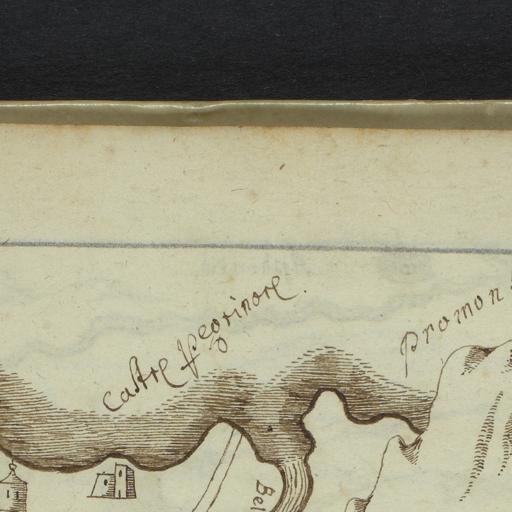 Castre pegrinore.
Promon
Bel